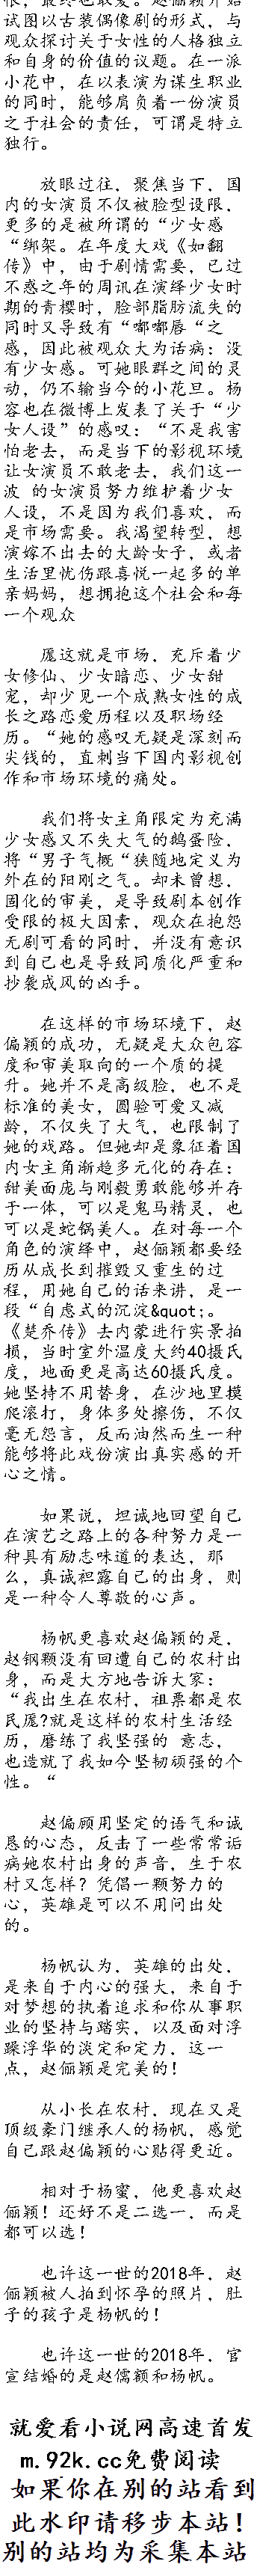 恨，最终也敢爱。赵俪颖开始
试图以古装偶像剧的形式，与
观众探讨关于女性的人格独立
和自身的价值的议题。在一派
小花中，在以表演为谋生职业
的同时，能够肩负着一份演员
之于社会的责任，可谓是特立
独行。
放眼过往，聚焦当下，国
内的女演员不仅被脸型设限，
更多的是被所谓的“少女感
“绑架。在年度大戏《如翻
传》中，由于剧情需要，已过
不惑之年的周讯在演绎少女时
期的青樱时，脸部脂肪流失的
同时又导致有“嘟嘟唇“之
感，因此被观众大为话病：没
有少女感。可她眼群之间的灵
动，仍不输当今的小花旦。杨
容也在微博上发表了关于“少
女人设”的感叹：“不是我害
怕老去，而是当下的影视环境
让女演员不敢老去，我们这一
波 的女演员努力维护着少女
人设，不是因为我们喜欢，而
是市场需要。我渴望转型，想
演嫁不出去的大龄女子，或者
生活里忧伤跟喜悦一起多的单
亲妈妈，想拥抱这个社会和每
一个观众
愿这就是市场，充斥着少
女修仙、少女暗恋、少女甜
宠，却少见一个成熟女性的成
长之路恋爱历程以及职场经
历。“她的感叹无疑是深刻而
尖钱的，直刺当下国内影视创
作和市场环境的痛处。
我们将女主角限定为充满
少女感又不失大气的鹅蛋险，
将“男子气概“狭随地定义为
外在的阳刚之气。却未曾想，
固化的审美，是导致剧本创作
受限的极大因素，观众在抱怨
无剧可看的同时，并没有意识
到自己也是导致同质化严重和
抄袭成风的凶手。
在这样的市场环境下，赵
偏颖的成功，无疑是大众包容
度和审美取向的一个质的提
升。她并不是高级脸，也不是
标准的美女，圆验可爱又减
龄，不仅失了大气，也限制了
她的戏路。但她却是象征着国
内女主角渐趋多元化的存在：
甜美面庞与刚毅勇敢能够并存
于一体，可以是鬼马精灵，也
可以是蛇锅美人。在对每一个
角色的演绎中，赵俪颖都要经
历从成长到摧毁又重生的过
程，用她自己的话来讲，是一
段“自虑式的沉淀&quot;。
《楚乔传》去内蒙进行实景拍
损，当时室外温度大约40摄氏
度，地面更是高达60摄氏度。
她坚持不用替身，在沙地里摸
爬滚打，身体多处擦伤，不仅
毫无怨言，反而油然而生一种
能够将此戏份演出真实感的开
心之情。
如果说，坦诚地回望自己
在演艺之路上的各种努力是一
种具有励志味道的表达，那
么，真诚袒露自己的出身，则
是一种令人尊敬的心声。
杨帆更喜欢赵偏颖的是，
赵钢颗没有回遭自己的农村出
身，而是大方地告诉大家：
“我出生在农村，祖票都是农
民愿?就是这样的农村生活经
历，磨练了我坚强的 意志，
也造就了我如今坚韧顽强的个
性。“
赵偏顾用坚定的语气和诚
恳的心态，反击了一些常常诟
病她农村出身的声音，生于农
村又怎样？凭倡一颗努力的
心，英雄是可以不用问出处
的。
杨帆认为，英雄的出处，
是来自于内心的强大，来自于
对梦想的执着追求和你从事职
业的坚持与踏实，以及面对浮
躁浮华的淡定和定力，这一
点，赵俪颖是完美的！
从小长在农村，现在又是
顶级豪门继承人的杨帆，感觉
自己跟赵偏颖的心贴得更近。
相对于杨蜜，他更喜欢赵
俪颖！还好不是二选一，而是
都可以选！
也许这一世的2018年，赵
俪颖被人拍到怀孕的照片，肚
子的孩子是杨帆的！
也许这一世的2018年，官
宣结婚的是赵儒额和杨帆。
就爱看小说网高速首发
m.92k.cc免费阅读
如果你在别的站看到
此水印请移步本站！
别的站均为采集本站